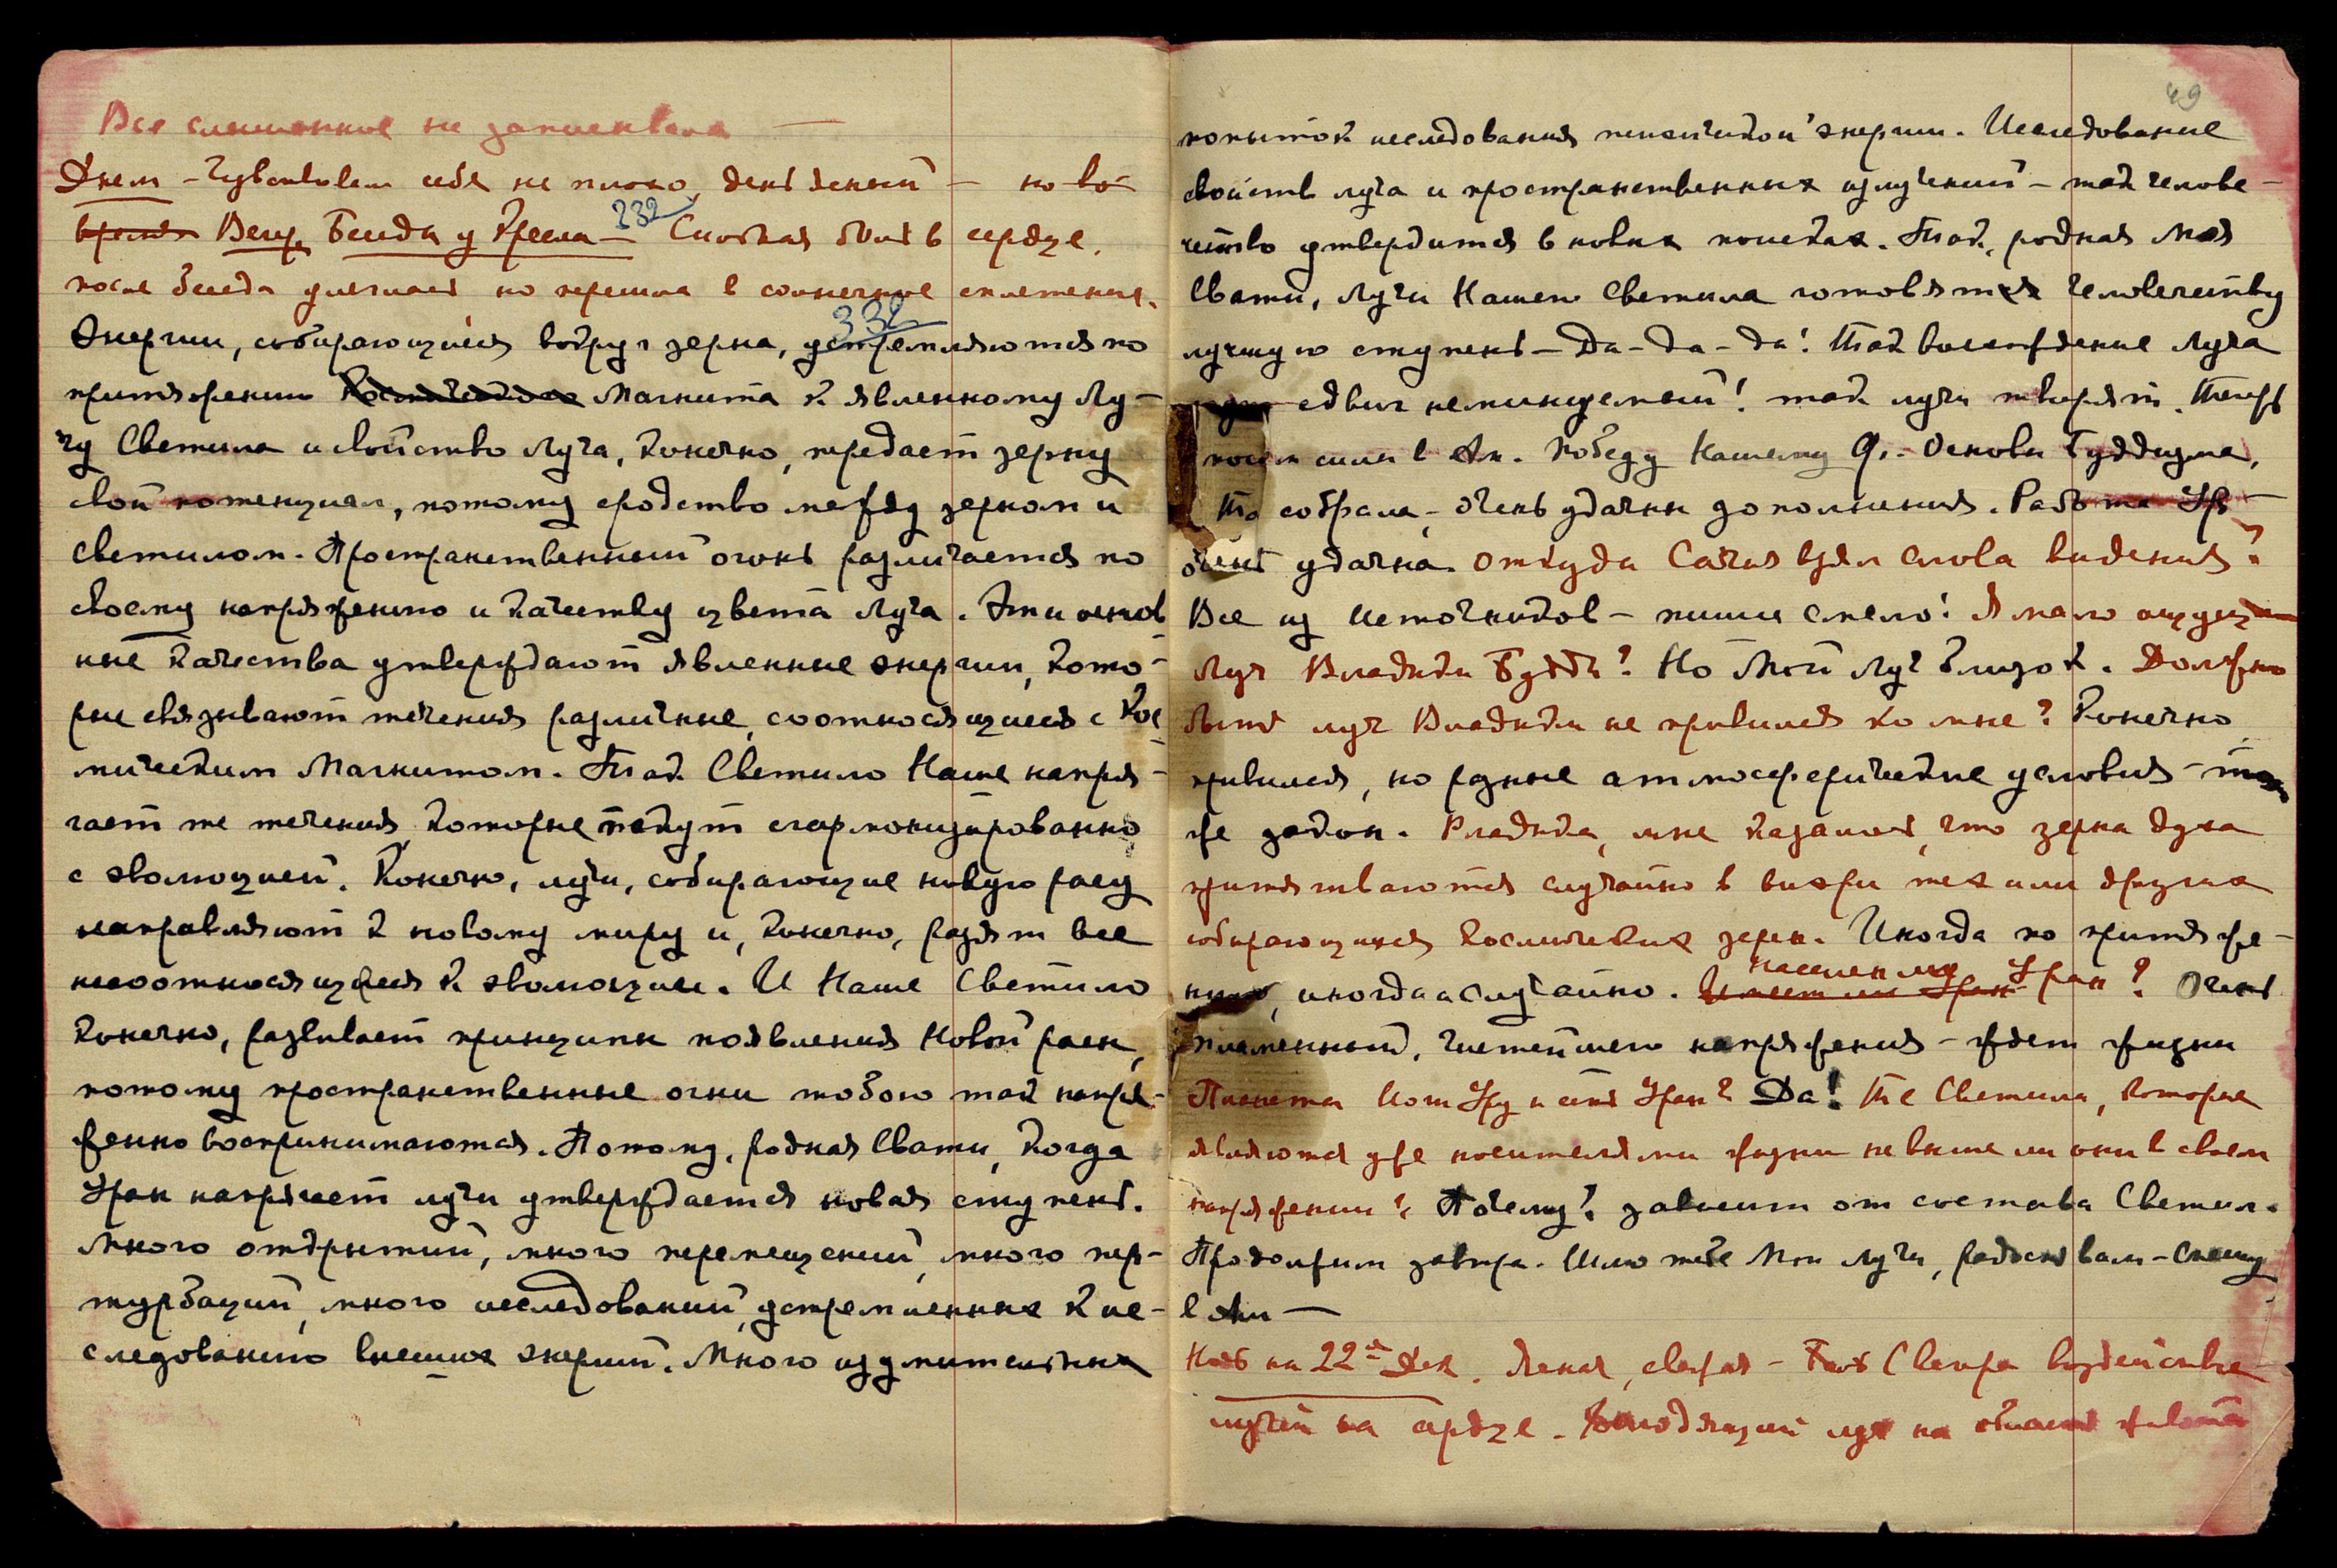 Все слышанное не записывала —
Днем – Чувствовала себя не плохо, день ясный – но во
время Веч. Беседы у Кресла – 232 Сильная боль в сердце,
после беседы улеглась но перешла в солнечное сплетение.
332
Энергии, собирающиеся вокруг зерна, устремляются по
притяжению Космических Магнита к явленному Лу-
чу Светила и свойство Луча, конечно, передает зерну
свой потенциал, потому сродство между зерном и
светилом. Пространственный огонь различается по
своему напряжению и качеству цвета Луча. Эти основ-
ные качества утверждают явленные энергии, кото-
рые связывают течения различные, соотносящиеся с Кос-
мическим Магнитом. Так Светило Наше напря-
гает те течения, которые текут сгармонизированно
с эволюцией. Конечно, лучи, собирающие новую расу
направляют к новому миру и, конечно, разят все
несоотносящееся к эволюции. И Наше Светило
конечно, развивает принципы появления Новой расы,
потому пространственные огни тобою так напря-
женно воспринимаются. Потому, родная Свати, когда
Уран напрягает лучи утверждается новая ступень.
Много открытий, много перемещений, много пер-
турбаций, много исследований, устремленных к ис-
следованию высших энергий. Много изумительных
49
попыток исследования психической энергии. Исследование
свойств луча и пространственных излучений – так челове-
чество утвердится в новых поисках. Так, родная Моя
Свати, Лучи Нашего Светила готовятся человечеству
лучшую ступень – Да – да – да! Так восхождение Луча
сдвиг неминуемый! так лучи творят. Теперь
сили в Ам. победу Нашему Ф. – Основы Буддизма,
То собрала – очень удачны дополнения. Работа Ур –
очень удачна. Откуда Сатия взял слова видения?
Все из источников – пиши смело! Я мало ощущаю
Луч Владыки Будды? Но Мой Луч близок. Должно
быть луч Владыки не привился ко мне? Конечно,
привился, но разные атмосферические условия – тот
же закон. Владыка, мне казалось, что зерна духа
притягиваются случайно в вихри тех или других
собирающихся космических зерен. Иногда по притяже-
нию, иногда и случайно. Имеет ли Уран населен ли Уран? Очень
пламенный, чистейшего напряжения – ждет жизни
Планета Иот Уру и есть Уран? Да! Те Светила, которые
являются уже носителями жизни не выше ли они в своем
напряжении? Почему? зависит от состава Светил.
Продолжим завтра. Шлю тебе Мои лучи, радость вам – Спешу
в Ам –
Ночь на 22ое Дек. Ясная, свежая – Свати воздействие
лучей на сердце. луч на область живота